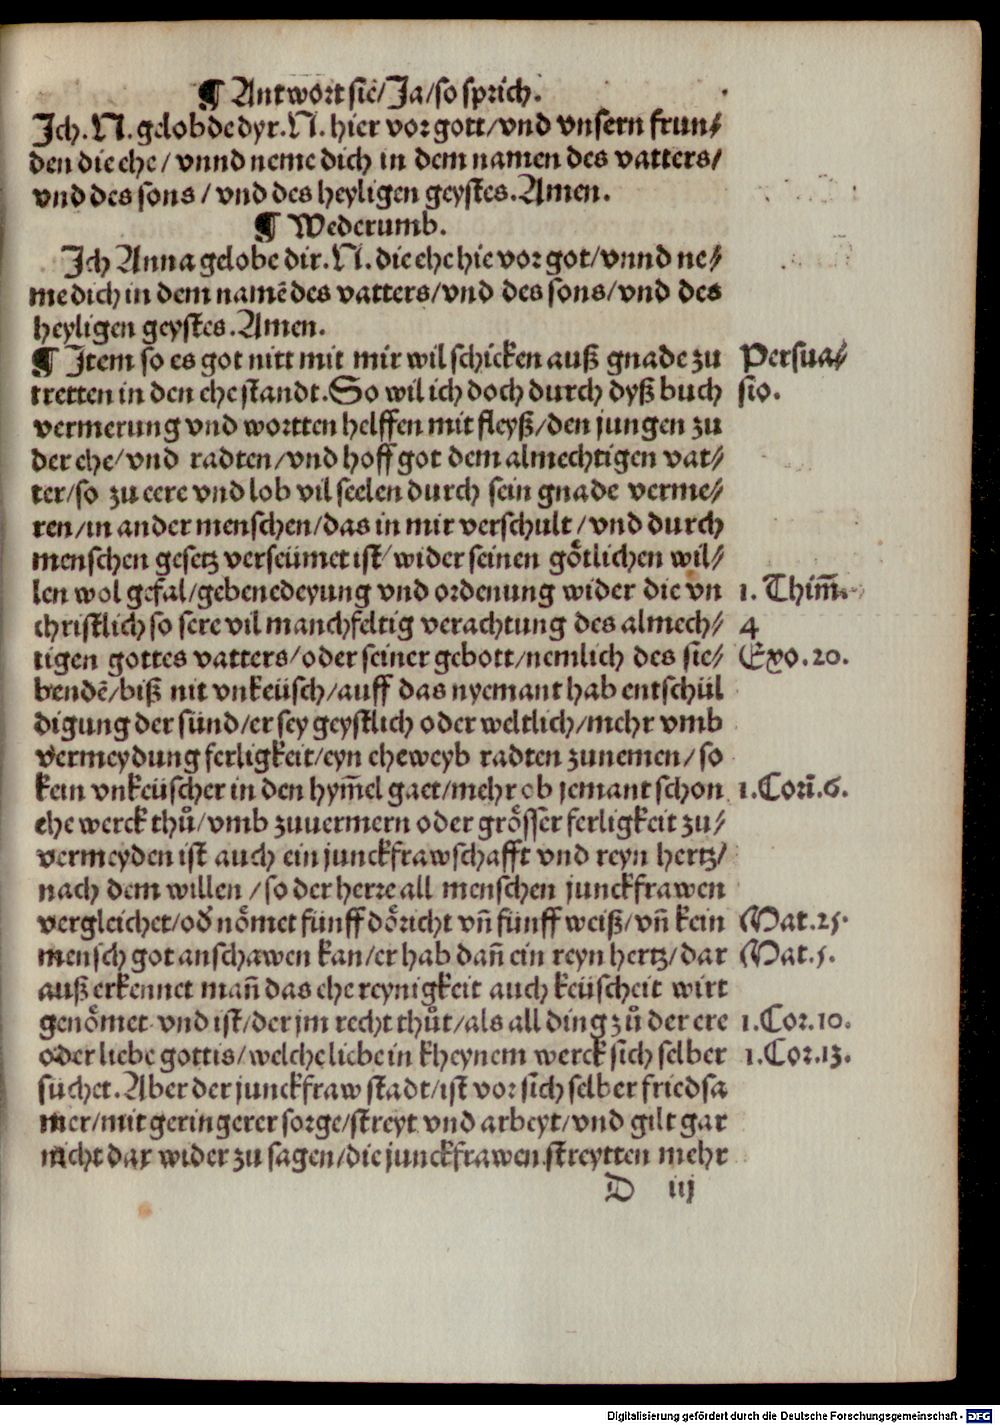 ¶ Antwort sie/Ja/so sprich.
Jch.N.gelobde dyr.N. hier vor gott/vnd vnsern frun/
den die ehe/ vnnd neme dich in dem namen des vatters/
vnd des sons / vnd des heyligen geystes.Amen.
¶ Wederumb.
Jch Anna gelobe dir.N.die ehe hie vor got/vnnd ne/
me dich in dem namē des vatters/vnd des sons/vnd des
heyligen geystes.Amen.
¶ Jtem so es got nitt mit mir wil schicken auß gnade zu Persua/
tretten in den ehe standt.So wil ich doch durch dyß buch sio.
vermerung vnd wortten helffen mit fleyß/den jungen zu
der ehe/vnd radten/vnd hoff got dem almechtigen vat/
ter/so zu eere vnd lob vil seelen durch sein gnade verme/
ren/in ander menschen/das in mir verschult / vnd durch
menschen gesetz verseümet ist/ wider seinen götlichen wil/
len wol gefal/gebenedeyung vnd ordenung wider die vn 1. Thim̄.
christlich so sere vil manchfeltig verachtung des almech/ 4
tigen gottes vatters/oder seiner gebott/nemlich des sie/ Exo.20.
bendē/biß nit vnkeüsch/auff das nyemant hab entschül
digung der sünd/er sey geystlich oder weltlich/mehr vmb
vermeydung ferligkeit/eyn eheweyb radten zunemen/ so
kein vnkeüscher in den hym̄el gaet/mehr ob jemant schon 1.Corī.6.
ehe werck thů/vmb zuuermern oder grösser ferligkeit zu/
vermeyden ist auch ein junckfrawschafft vnd reyn hertz/
nach dem willen /so der herre all menschen junckfrawen
vergleichet/od̓ nömet fünff döricht vn̄ fünff weiß/vn̄ kein Mat.25.
mensch got anschawen kan/er hab dan̄ ein reyn hertz/dar Mat.5.
auß erkennet man̄ das ehe reynigkeit auch keüscheit wirt
genömet vnd ist/der jm recht thůt/als all ding zů der ere 1.Cor.10.
oder liebe gottis/welche liebe in kheynem werck sich selber 1.Cor.13.
süchet.Aber der junckfraw stadt/ist vor sich selber friedsa
mer/mit geringerer sorge/streyt vnd arbeyt/vnd gilt gar
nicht dar wider zu sagen/die junckfrawen streytten mehr
D iij
Digitalisierung gefördert durch die Deutsche Forschungsgemeinschaft - DFG